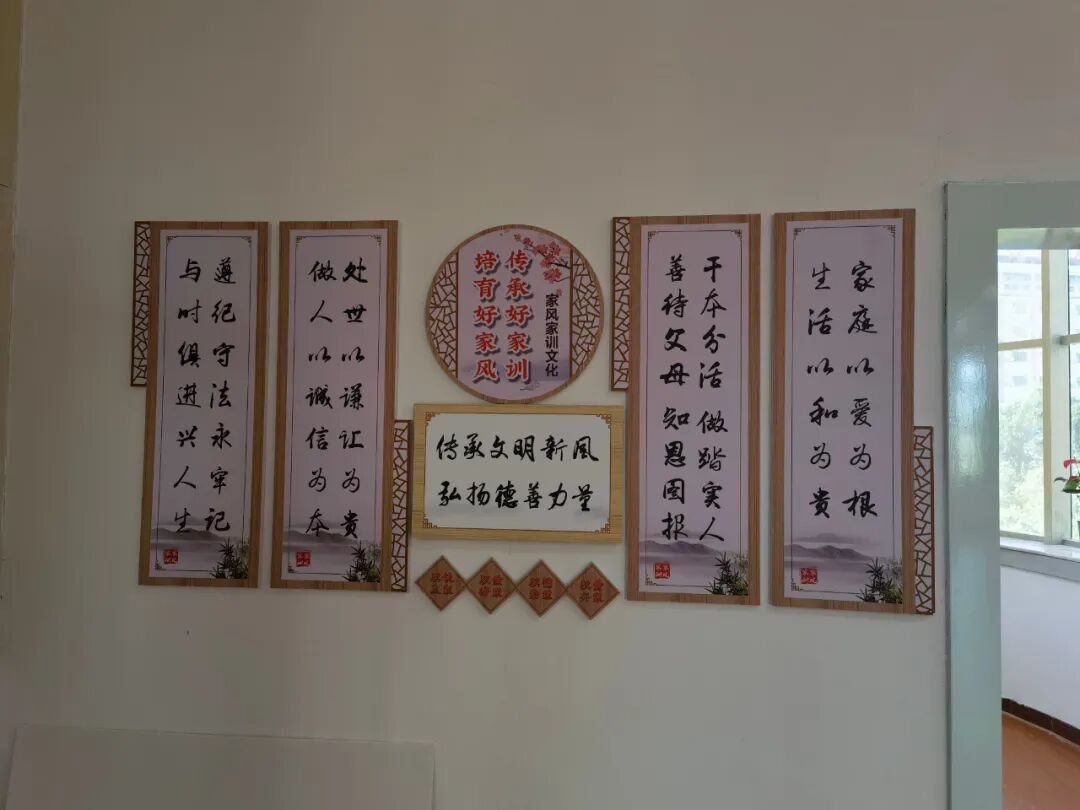 家庭以爱为根
生活以和为贵
干本分活做踏实人
善待父母知恩图报
传承好家训
培育好家风
家风家训文化
传承文明新风
弘扬德善力量
处世以谦让为贵
做人以诚信为本
遵纪守法永牢记
与时俱进兴人生